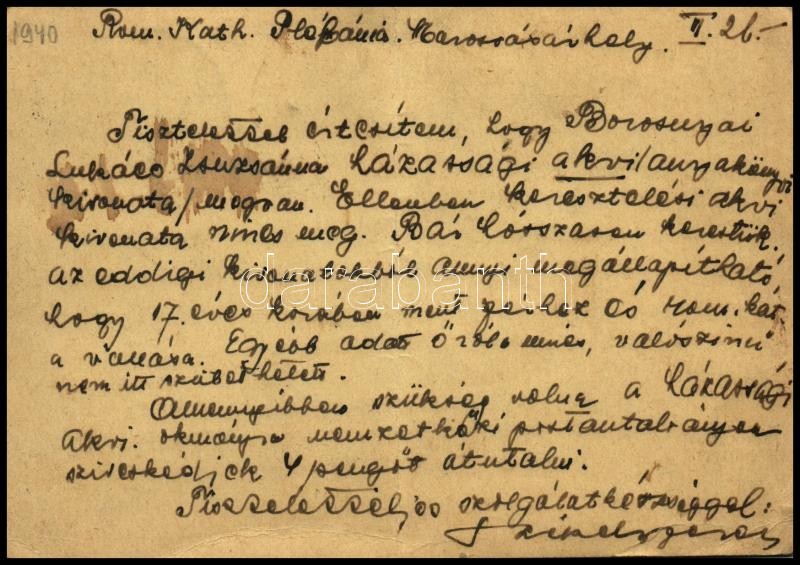 1940
Rom. Kath. Plébánia. Marosvásárhely. II. 26.-
Tisztelettel értesítem, hogy Borosnyai
Lukács Zsuzsánna házassági akvi/anyakönyvi
kivonata/megvan. Ellenben keresztelési akvi
kivonata nincs meg. Bár hosszasan kerestük.
az eddigi kivonatokból annyi megállapítható
hogy 17. éves korában ment férjhez és rom. kat
a vallása. Egyéb adat őróla nincs, valószinü
nem itt születhetett.
Amennyibben szükség volna a házassági
akvi. okmányra nemzetközi postautalványon
sziveskedjék 4 pengőt átutalni.
Tisztelettel, és szolgálatkészséggel:
darabanth